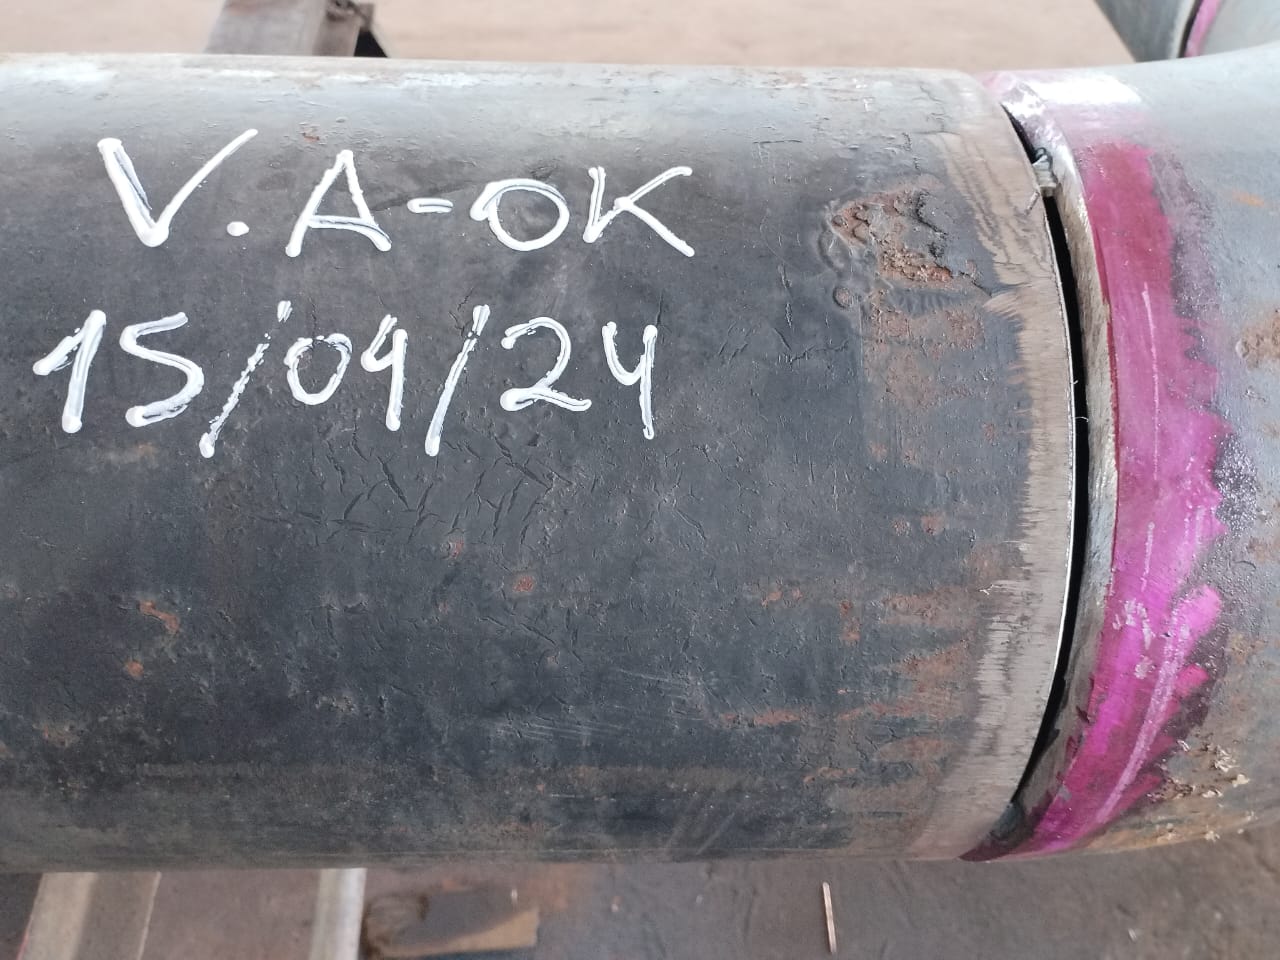 V.A-OK
15/04/24